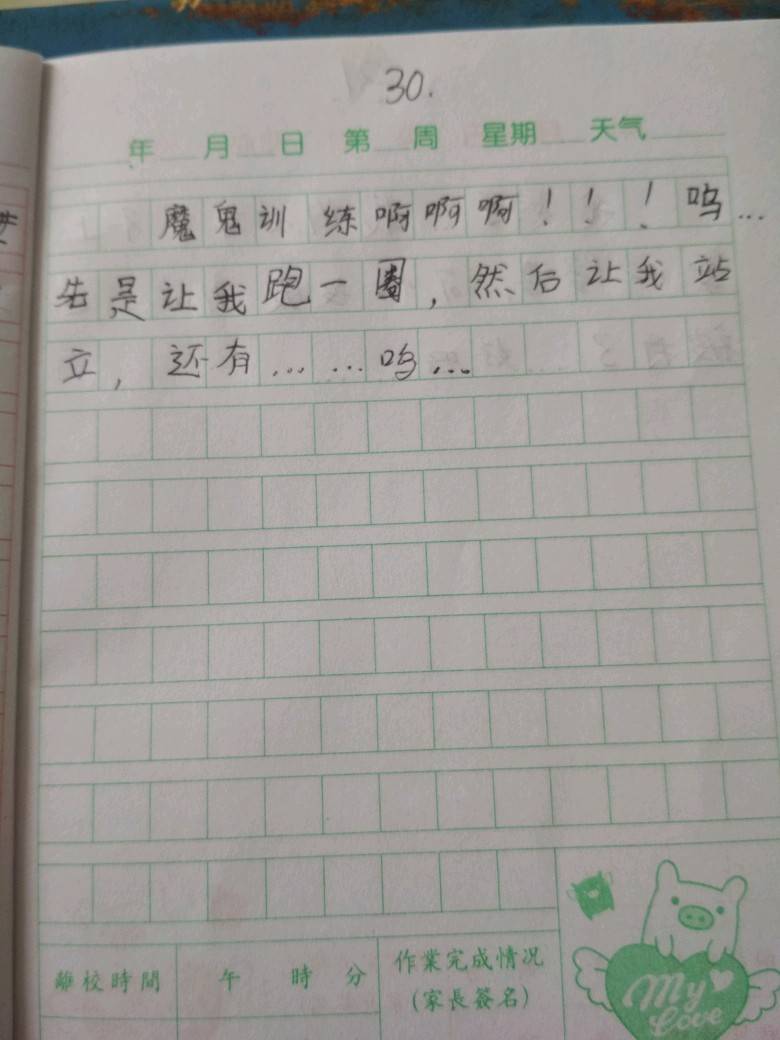 30.
年 月 日 第 周 星期 天气
魔鬼训练啊啊啊！！！呜…
先是让我跑一圈，然后让我站
立，还有……呜…
離校時間 午 時 分 作業完成情况
(家長簽名)
My
Love